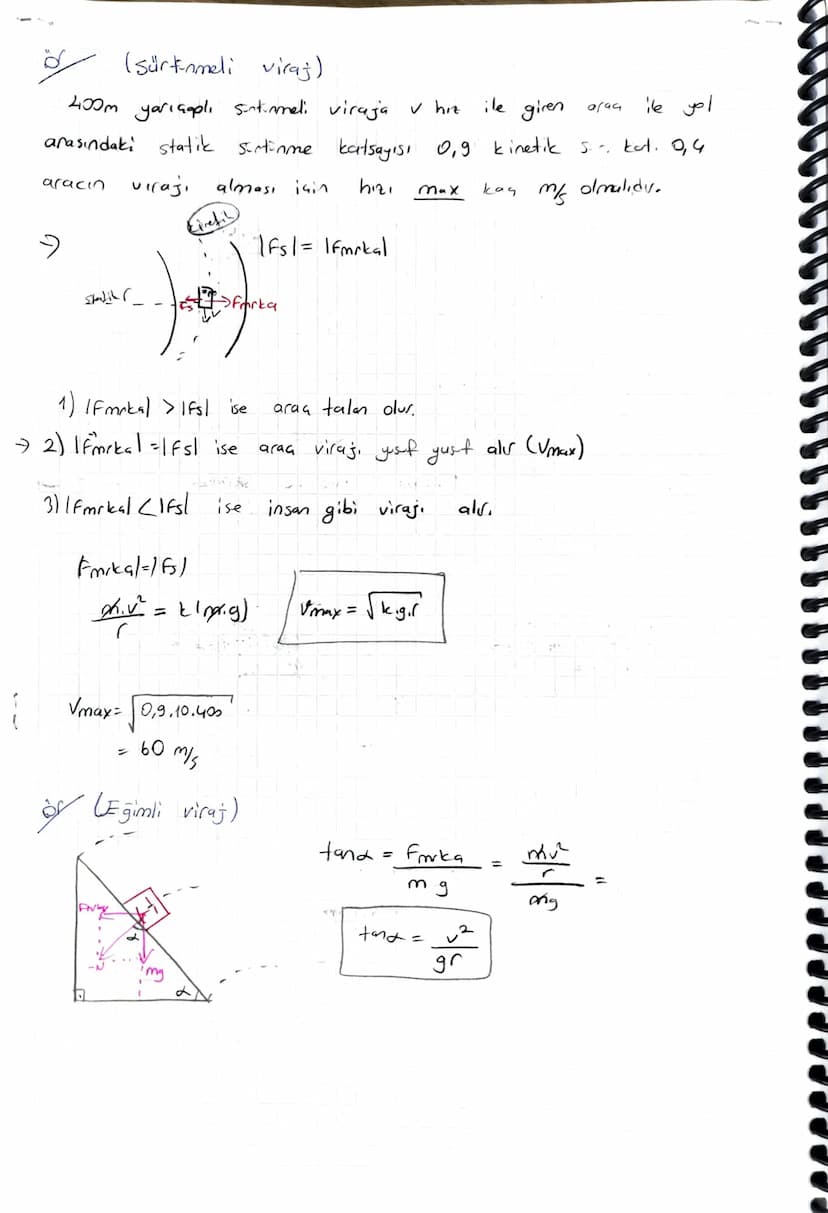 ör (Sürtünmeli viraj)
400m yarıçaplı sürtünmeli viraja v hız ile giren araç ile yol
arasındaki statik sürtünme katsayısı 0,9 kinetik s.. kat. 0,4
aracın virajı alması için hızı max kaç m/s olmalıdır.
kinetik
→ |Fs| = |Fmrkal
statik Fs Fmrka
V
1) |Fmrkal > |Fs| ise araç talan olur.
→ 2) |Fmrkal = |Fs| ise araç virajı yusf yusf alır (Vmax)
3) |Fmrkal < |Fs| ise insan gibi virajı alır.
Fmrkal = |Fs|
m.v² / r = k(m.g) Vmax = √k.g.r
Vmax = √0,9.10.400
= 60 m/s
ör (Eğimli viraj)
tanα = Fmrka / m g = mv²/r / mg =
tanα = v² / gr
α
-N mg
α